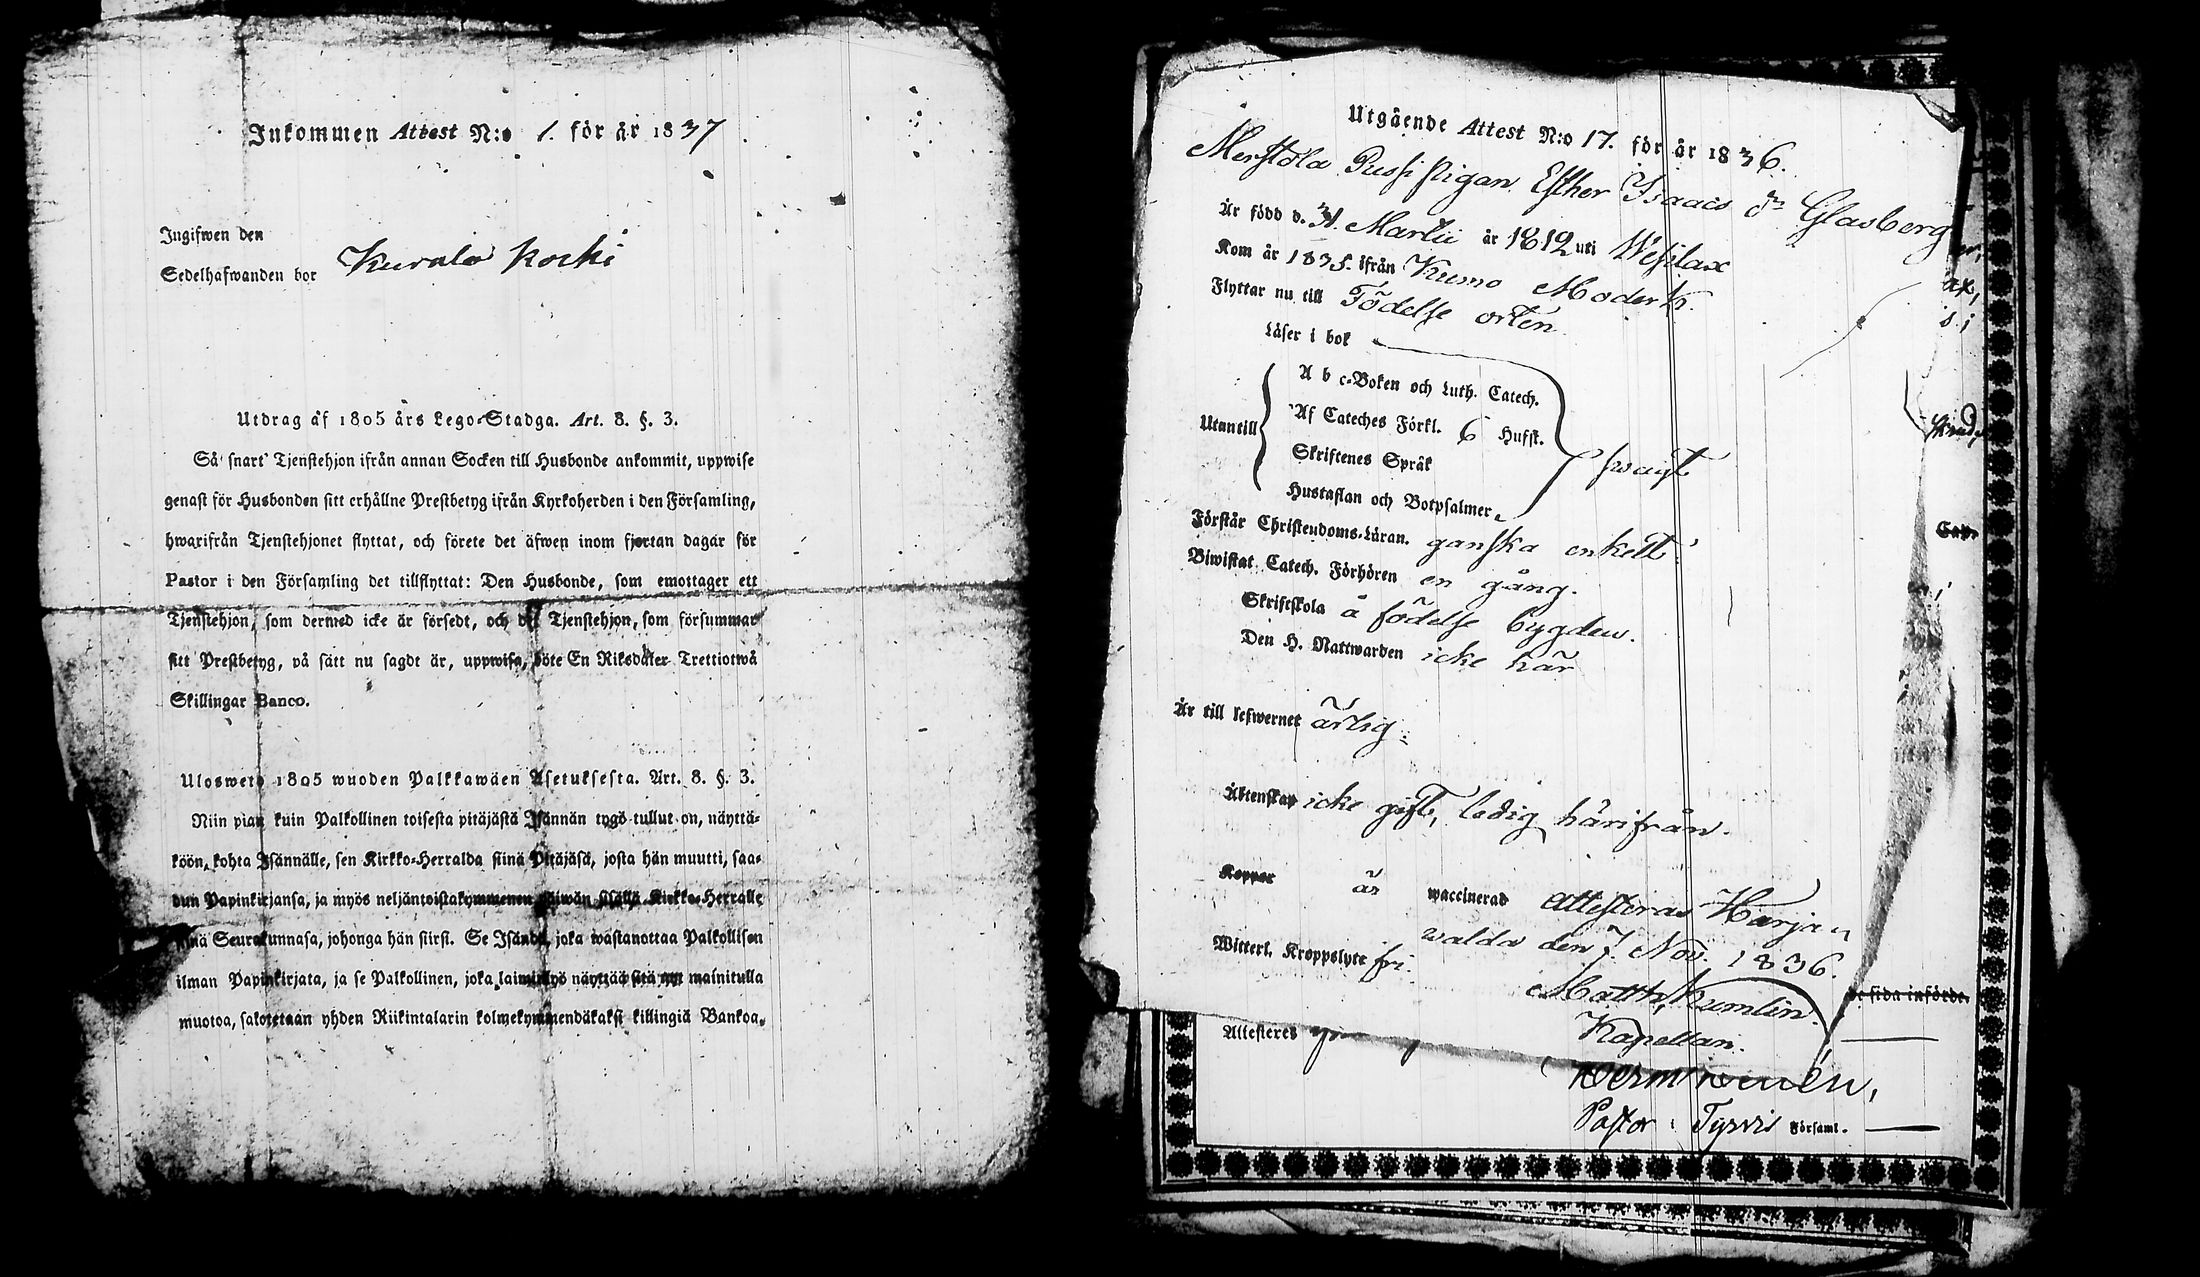 Inkommen Attest N:o 1. för år 1837
Ingifwen den
Sedelhafwanden bor Kurala Kocki
Utdrag af 1805 års Lego-Stadga. Art. 8. §. 3.
Så snart Tjenstehjon ifrån annan Socken till Husbonde ankommit, uppwise
genast för Husbonden sitt erhållne Prestbetyg ifrån Kyrkoherden i den Församling,
hwarifrån Tjenstehjonet flyttat, och förete det äfwen inom fjortan dagar för
Pastor i den Församling det tillflyttat: Den Husbonde, som emottager ett
Tjenstehjon, som dermed icke är försedt, och det Tjenstehjon, som försummar
sitt Prestbetyg, på sätt nu sagdt är, uppwisa, böte En Riksdaler Trettiotwå
Skillingar Banco.
Ulosweto 1805 wuoden Palkkawäen Asetuksesta. Art. 8. §. 3.
Niin pian kuin Palkollinen toisesta pitäjästä Isännän tygö tullut on, näyttä-
köön kohta Isännälle, sen Kirkko-Herralda siinä Pitäjäsä, josta hän muutti, saa-
dun Papinkirjansa, ja myös neljäntoistakymmenen päiwän sisällä Kirkko-Herralle
siinä Seurakunnasa, johonga hän siirsi. Se Isändä, joka wastanottaa Palkollisen
ilman Papinkirjata, ja se Palkollinen, joka laiminlyö näyttää sitä nyt mainitulla
muotoa, sakotetaan yhden Riikintalarin kolmekymmendäkaksi killingiä Bankoa.
Utgående Attest N:o 17. för år 1836.
Merstola Pussi pigan Esther Isaacs dr Glasberg
Är född d. 31. Martii år 1812 uti Wesilax
Kom år 1835. ifrån Kumo Moderk.
Flyttar nu till Födelse orten
Läser i bok
A b c-Boken och Luth. Catech.
Af Cateches Förkl. 6 Hufst.
Utantill
Skriftenes Språk swagt
Hustaflan och Botpsalmer
Förstår Christendoms-Läran. ganska enkelt
Biwistat Catech. Förhören en gång.
Skriftskola å födelse bygden.
Den H. Nattwarden icke här
Är till lefwernet ärlig
Äktenskap icke gift, ledig härifrån.
Koppor är waccinerad attesteras Harjan
walda den 7. Nov. 1836.
Witterl. Kroppslyte fri.
Matth. Kumlin.
Kapellan.
de sida införde.
Attesteres
Pastor i Tyrvis Församl.